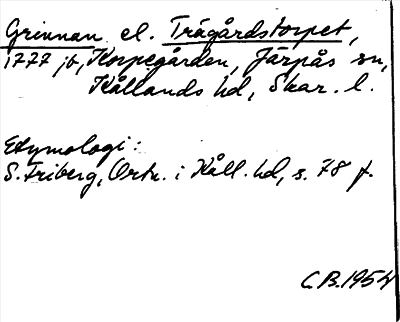 Grinnan el. Trägårdstorpet,
1777 jb, Korpegården, Järpås sn,
Kållands hd, Skar. l.
Etymologi:
S. Friberg, Ortn. i Kåll. hd, s. 78 f.
C.B. 1954